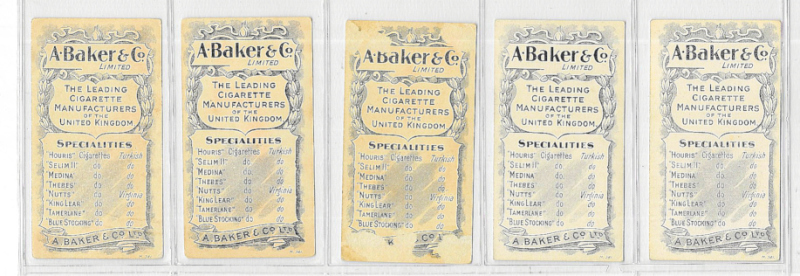 A. Baker & Co.
LIMITED
THE LEADING
CIGARETTE
MANUFACTURERS
OF THE
UNITED KINGDOM
SPECIALITIES
"HOURIS" Cigarettes Turkish
"SELIM II" do do
"MEDINA" do do
"THEBES" do do
"NUTTS" do Virginia
"KING LEAR" do do
"TAMERLANE" do do
"BLUE STOCKING" do do
A. BAKER & CO LTD
A. Baker & Co.
LIMITED
THE LEADING
CIGARETTE
MANUFACTURERS
OF THE
UNITED KINGDOM
SPECIALITIES
"HOURIS" Cigarettes Turkish
"SELIM II" do do
"MEDINA" do do
"THEBES" do do
"NUTTS" do Virginia
"KING LEAR" do do
"TAMERLANE" do do
"BLUE STOCKING" do do
A. BAKER & CO LTD
A. Baker & Co.
LIMITED
THE LEADING
CIGARETTE
MANUFACTURERS
OF THE
UNITED KINGDOM
SPECIALITIES
"HOURIS" Cigarettes Turkish
"SELIM II" do do
"MEDINA" do do
"THEBES" do do
"NUTTS" do Virginia
"KING LEAR" do do
"TAMERLANE" do do
"BLUE STOCKING" do do
CO
A. Baker & Co.
LIMITED
THE LEADING
CIGARETTE
MANUFACTURERS
OF THE
UNITED KINGDOM
SPECIALITIES
"HOURIS" Cigarettes Turkish
"SELIM II" do do
"MEDINA" do do
"THEBES" do do
"NUTTS" do Virginia
"KING LEAR" do do
"TAMERLANE" do do
"BLUE STOCKING" do do
A. BAKER & CO LTD
A. Baker & Co.
LIMITED
THE LEADING
CIGARETTE
MANUFACTURERS
OF THE
UNITED KINGDOM
SPECIALITIES
"HOURIS" Cigarettes Turkish
"SELIM II" do do
"MEDINA" do do
"THEBES" do do
"NUTTS" do Virginia
"KING LEAR" do do
"TAMERLANE" do do
"BLUE STOCKING" do do
A. BAKER & CO LTD